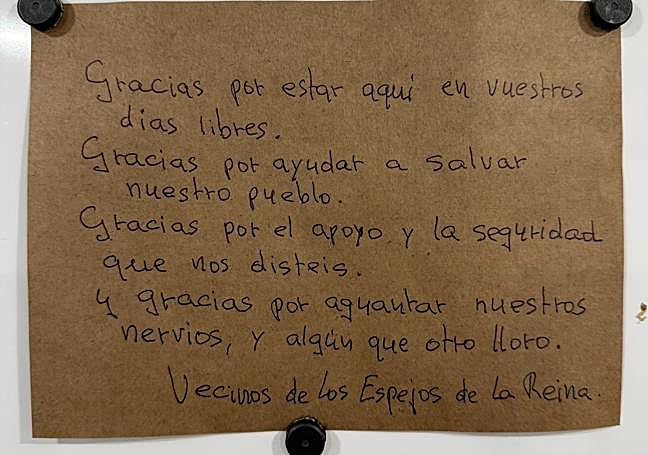 Gracias por estar aquí en vuestros
días libres.
Gracias por ayudar a salvar
nuestro pueblo.
Gracias por el apoyo y la seguridad
que nos disteis.
y gracias por aguantar nuestros
nervios, y algún que otro lloro.
Vecinos de Los Espejos de La Reina.